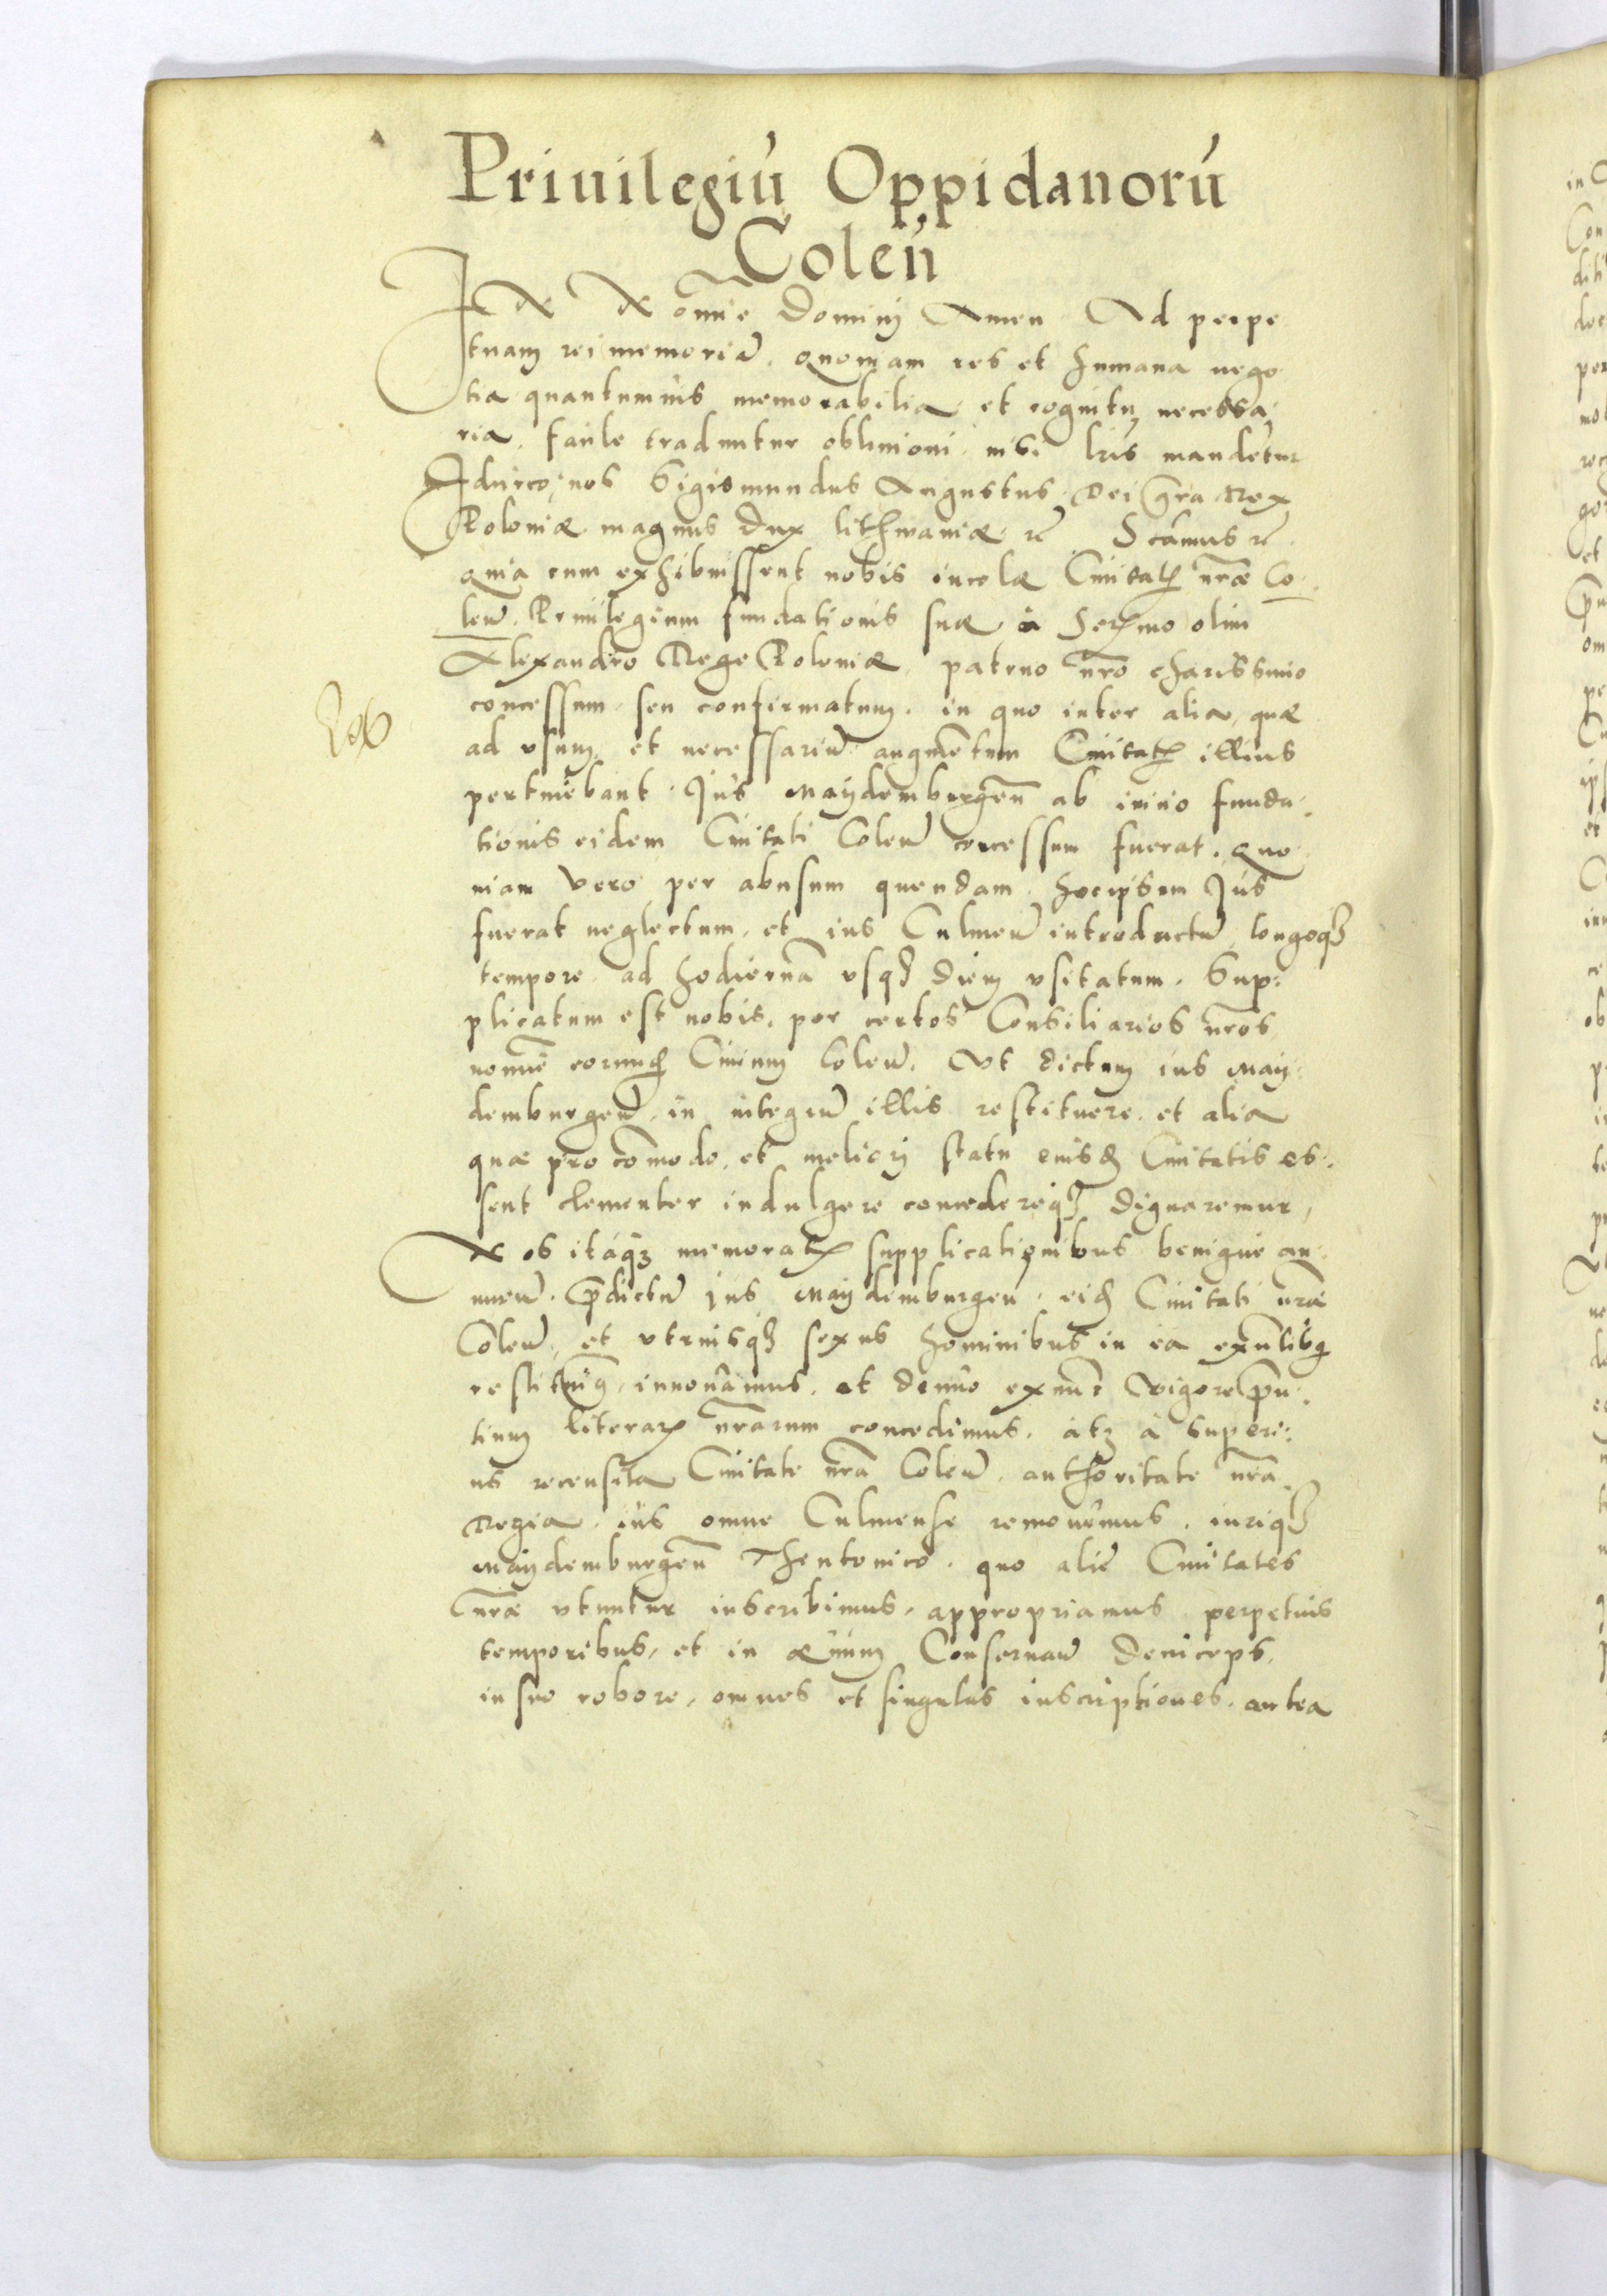 Priuilegiú Oppidanorú
Coleń
IN Nomīe Dominj Amen Ad perpe
tuam rei memoriā. quoniam res et humana nego
tia quantumuis memorabilia et cognitu necessa
ria. facile traduntur obliuioni nisi lr̄is mandētur
Idcirco nos Sigismundus Augustus Dei gr̄a Rex
Poloniæ magnus Dux lithwaniæ rc̄ Scamus rc̄
quia cum exhibuissent nobis incolæ Ciuitatꝭ nr̄æ Co
len̄. Priuilegium fundationis suæ à Serꝫmo olim
Alexandro Rege Poloniæ patruo nr̄o charissimo
concessum seu confirmatum. in quo inter alia, quæ
ad vsum et necessariū augmētum Ciuitatꝭ illius
pertinebant Jus Maydemburgen̄ ab inicio funda
tionis eidem Ciuitati Colen̄ concessum fuerat. quo
niam vero per abusum quendam hocipsum Jus
fuerat neglectum, et ius Culmen̄ introductū, longoqꝫ
tempore ad hodiernā vsqꝫ diem vsitatum. Sup:
plicatum est nobis, per certos Consiliarios nr̄os
nomīe eorundꝫ Ciuium Colen̄. Vt dictum ius May
demburgen̄ in integrū illis restituere et alia
quæ pro cōmodo, et meliorj statu eiusdꝫ Ciuitatis es:
sent clementer indulgere concedereqꝫ dignaremur,
Nos itaqꝫ memoratꝭ supplicationibus benigne an
nuen̄. p̄dictū Jus Maydemburgen̄. eidꝫ Ciuitati nr̄æ
Colen̄, et vtriusqꝫ sexus hominibus in ea exn̄tibꝫ
restituimꝰ, innouamus. et denuo ex nūc Vigore p̄n:
tium literarꝭ nr̄arum concedimus. atqꝫ à superi:
us recensita Ciuitate nr̄a Colen̄ authoritate nr̄a
Regia. ius omne Culmense remouemus. iuriqꝫ
Maydemburgen̄ Theutonico. quo aliæ Ciuitates
nr̄æ vtuntur inscribimus, appropriamus perpetuis
temporibus, et in æuum Conseruan̄ Deniceps,
in suo robore, omnes et singulas inscriptiones. antea